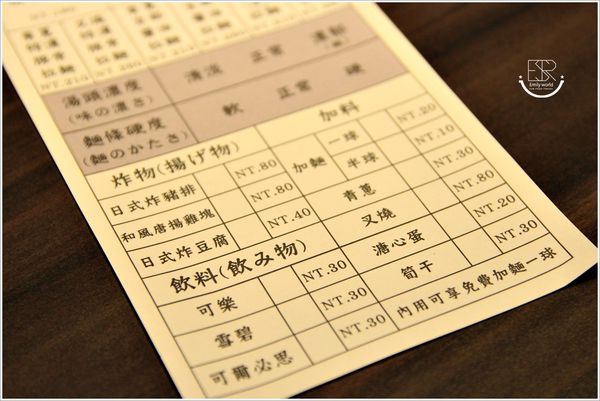 NT.210
湯頭濃度 清淡 正常 濃郁
(味の濃さ)
麵條硬度 軟 正常 硬
(麵のかたさ)
炸物(揚げ物)
日式炸豬排 NT.80
和風唐揚雞塊 NT.80
日式炸豆腐 NT.40
飲料(飲み物)
可樂 NT.30
雪碧 NT.30
可爾必思 NT.30
加料
加麵 一球 NT.20
半球 NT.10
青蔥 NT.30
叉燒 NT.80
溏心蛋 NT.20
筍干 NT.30
內用可享免費加麵一球
ESR
Emily world